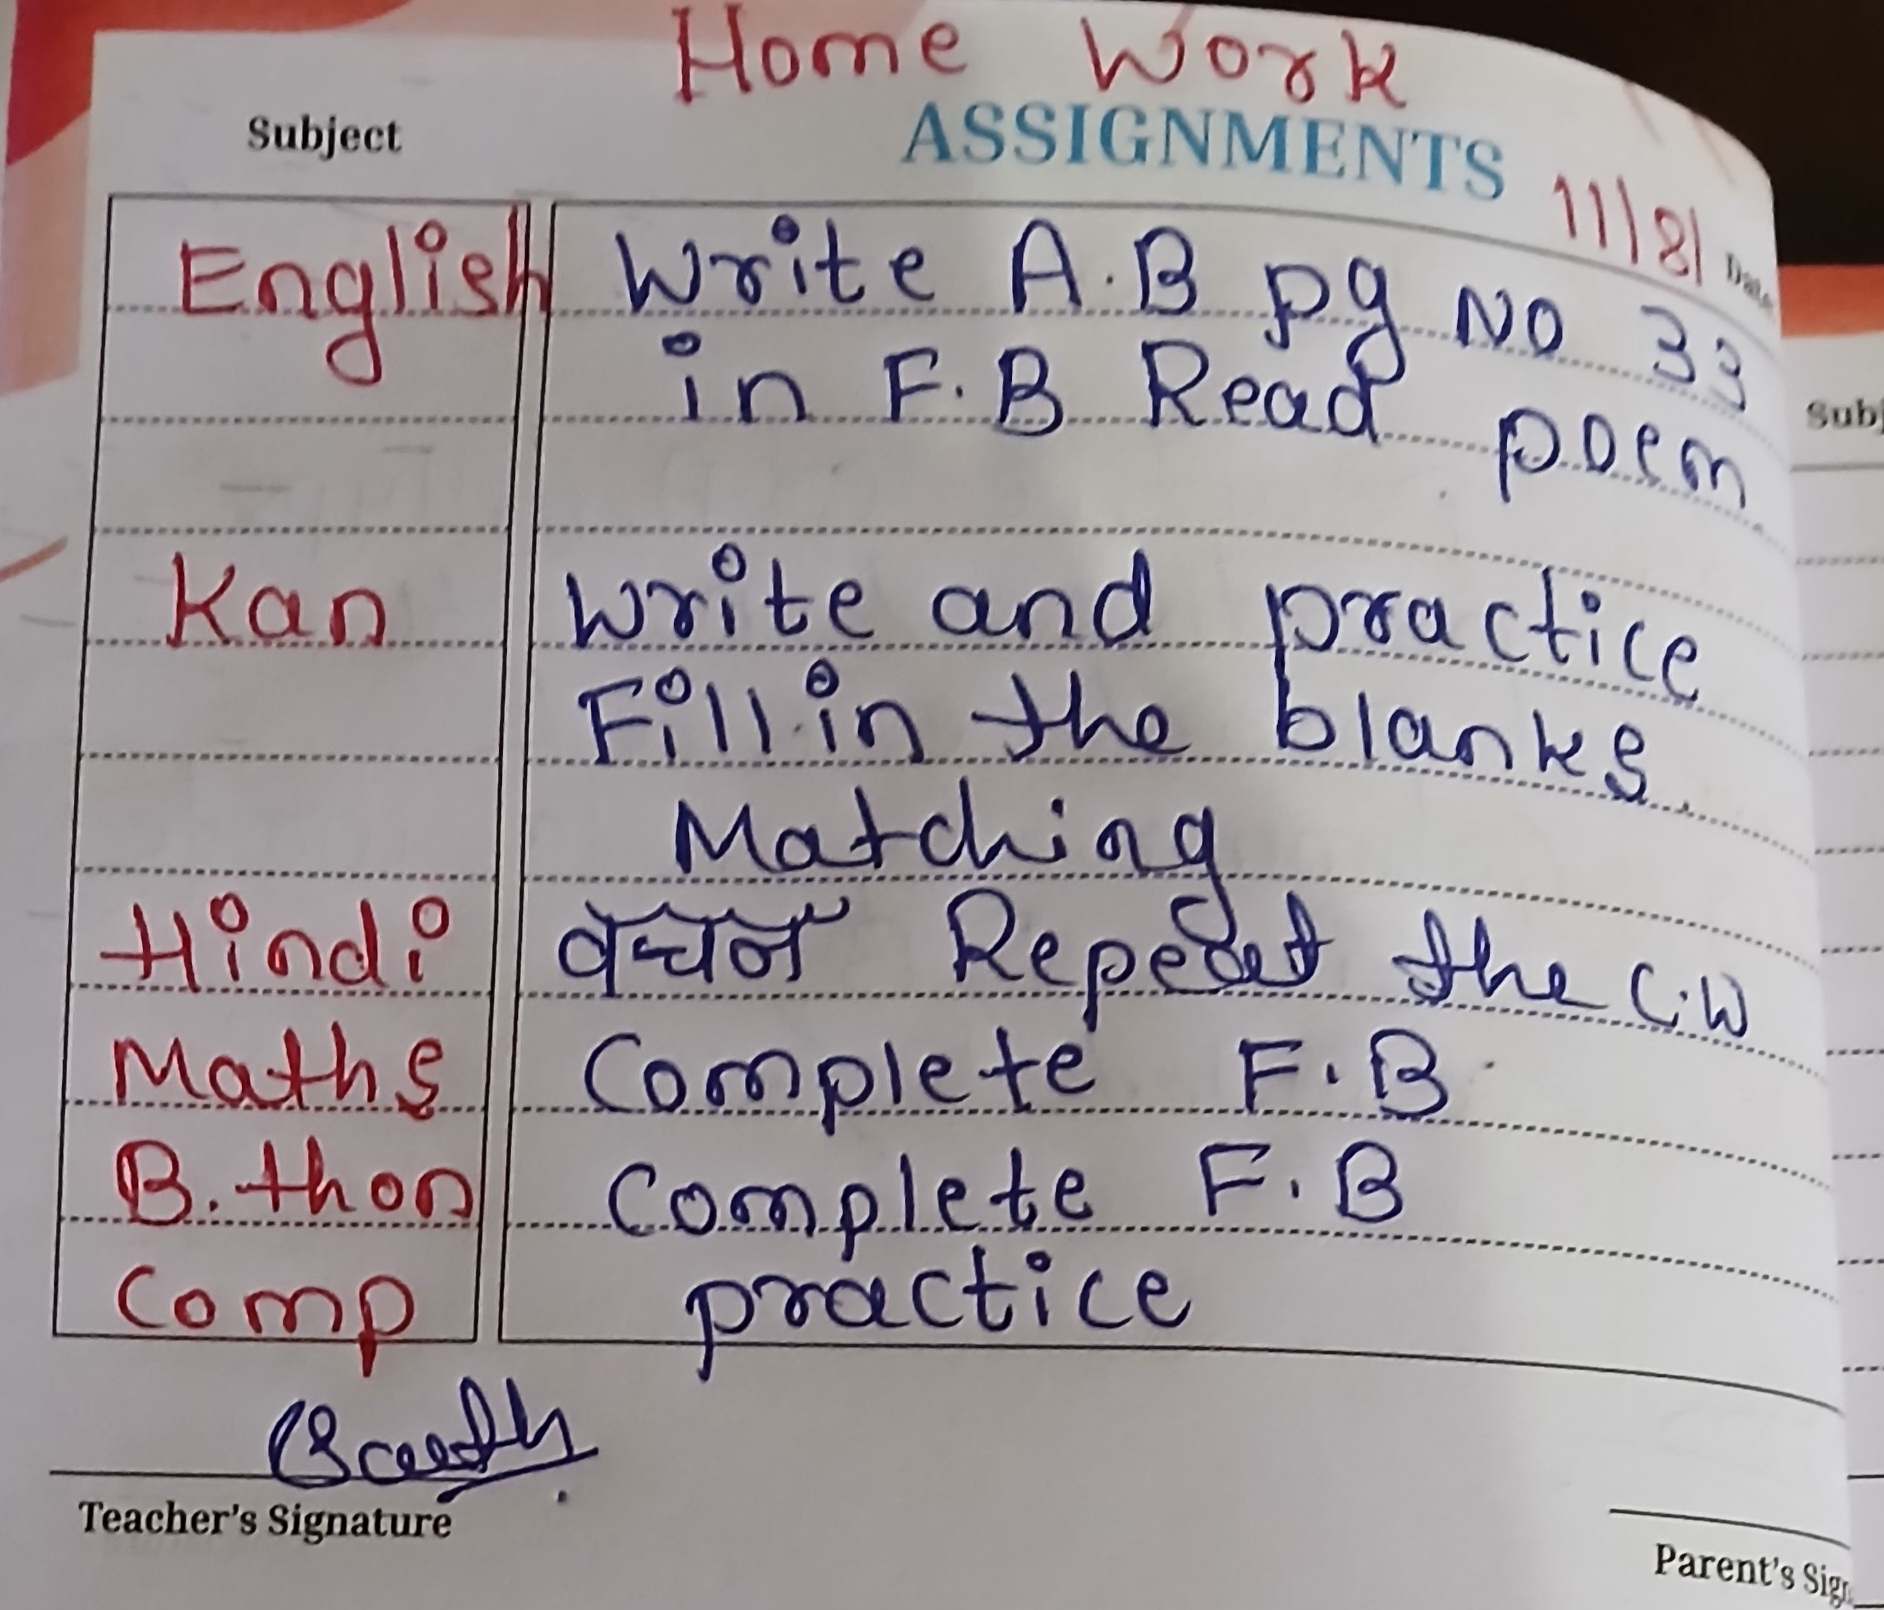 Home Work
Subject ASSIGNMENTS
11/8/ Date
English Write A.B pg No 33
in F.B Read poem
Kan Write and practice
Fill in the blanks
Matching
Hindi वचन Repeat the C.W
Maths Complete F.B
B.thon Complete F.B
Comp practice
Teacher's Signature
Parent's Sign
Subj